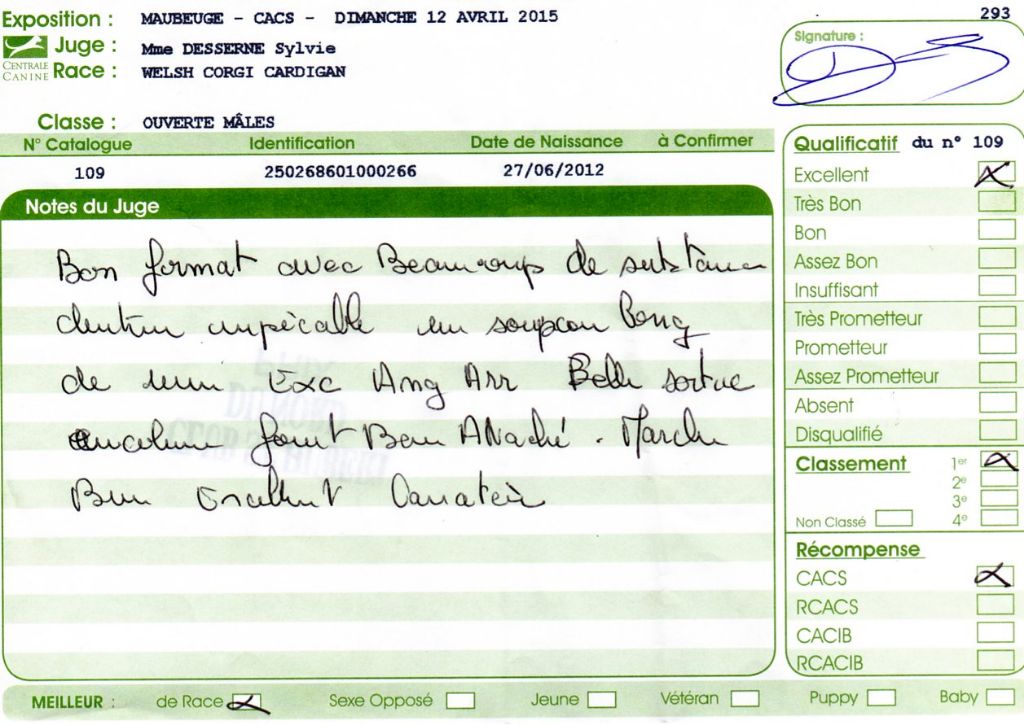 Exposition : MAUBEUGE - CACS - DIMANCHE 12 AVRIL 2015
293
CENTRALE CANINE
Juge : Mme DESSERNE Sylvie
Race : WELSH CORGI CARDIGAN
Signature :
Classe : OUVERTE MÂLES
N° Catalogue Identification Date de Naissance à Confirmer
109 250268601000266 27/06/2012
Notes du Juge
Bon format avec Beaucoup de substance
un soupcon long
de rein Exc Ang Arr Belle sortie
fouet Bien Attaché . Marche
Bien Excellent Caractère
Qualificatif du n° 109
Excellent
Très Bon
Bon
Assez Bon
Insuffisant
Très Prometteur
Prometteur
Assez Prometteur
Absent
Disqualifié
Classement 1er
2e
3e
Non Classé 4e
Récompense
CACS
RCACS
CACIB
RCACIB
MEILLEUR : de Race Sexe Opposé Jeune Vétéran Puppy Baby